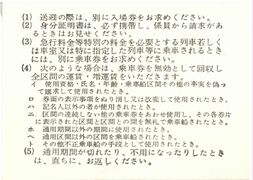 (1) 送迎の際は、別に入場券をお求めください。
(2) 身分証明書は、必ず携帯し、係員から請求が
あるときはお見せください。
(3) 急行料金等特別の料金を必要とする列車若しく
は車室又は特に指定した列車等に乗車されるとき
は、別に乗車券をお求めください。
(4) 次のような場合は、乗車券を無効として回収し
全区間の運賃・増運賃をいただきます。
イ 使用資格・氏名・年齢・乗車船区間その他の事実を偽っ
て購求して使用されたとき。
ロ 券面の表示事項をぬり消し又は改変して使用されたとき。
ハ 記名人以外の者が使用されたとき。
ニ 区間の連続しない他の乗車券をあわせ使用し、その各券片
に表示された区間と区間との間を無札で乗車船されたとき。
ホ 通用期間以外の期間に使用されたとき。
ヘ 通用区間以外の区間に使用されたとき。
ト その他不正乗車船の手段として使用されたとき。
(5) 通用期間が切れたり、不用になったりしたとき
は、直ちに、お返しください。